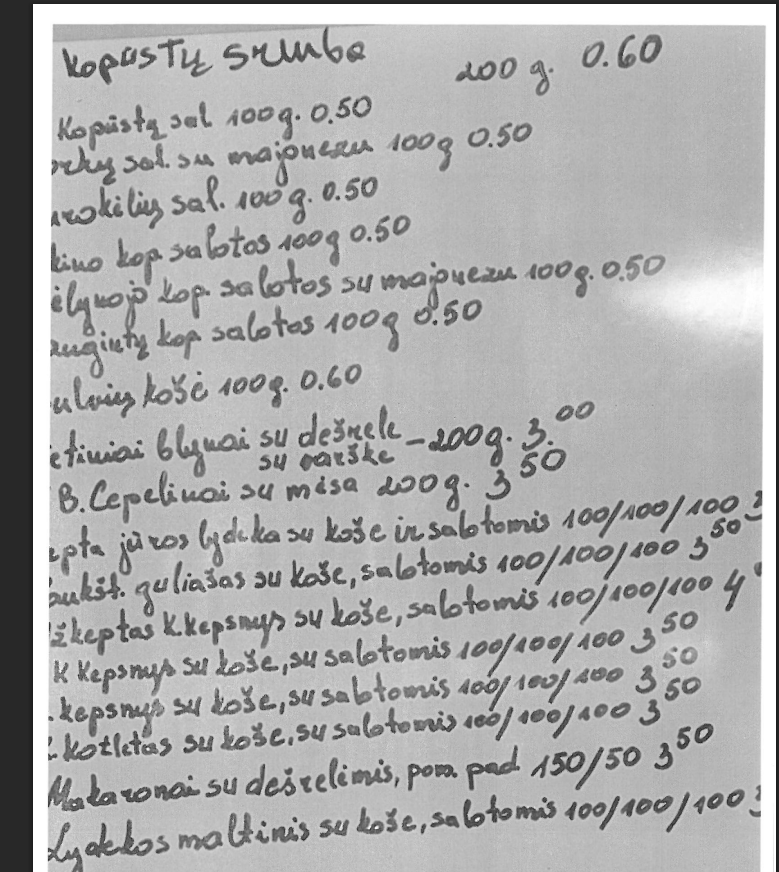 Kopūstų sriuba 200 g. 0.60
Kopūstų sal 100g. 0.50
orkų sal. su majonezu 100g 0.50
urokėlių sal. 100 g. 0.50
kino kop salotos 100g 0.50
ėlynojo kop. salotos su majonezu 100g. 0.50
augintų kop salotos 100g 0.50
ulvių košė 100g. 0.60
etiniai blynai su dešrele – 200g. 3.00
su varške
B. Cepelinai su mėsa 200g. 3 50
epta jūros lydeka su koše ir salotomis 100/100/100 3
aukšt. guliašas su koše, salotomis 100/100/100 3 50
žkeptas K.kepsnys su koše, salotomis 100/100/100 4
K Kepsnys su koše, su salotomis 100/100/100 3 50
. kepsnys su koše, su salotomis 100/100/100 3 50
. kotletas su koše, su salotomis 100/100/100 3 50
Makaronai su dešrelėmis, pom. pad 150/50 3 50
Lydekos maltinis su koše, salotomis 100/100/100 3